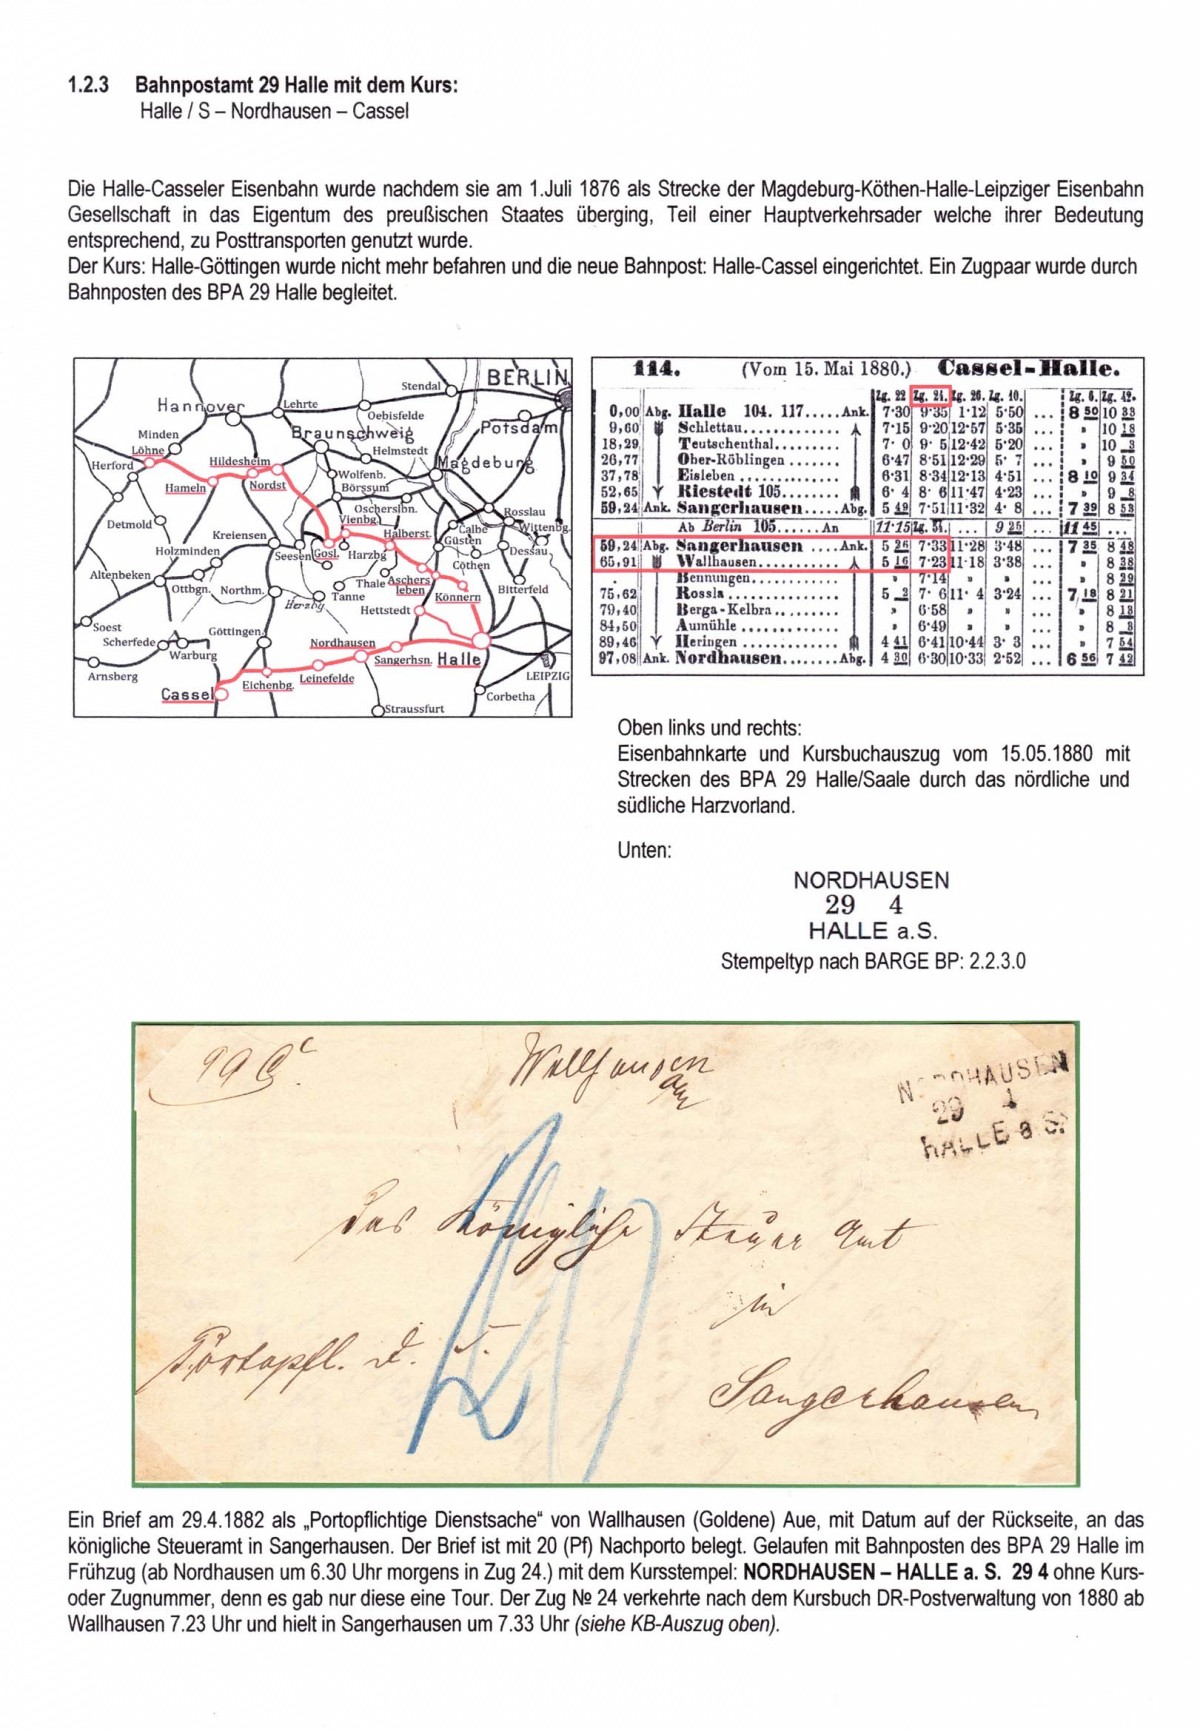 1.2.3 Bahnpostamt 29 Halle mit dem Kurs:
Halle / S – Nordhausen – Cassel
Die Halle-Casseler Eisenbahn wurde nachdem sie am 1.Juli 1876 als Strecke der Magdeburg-Köthen-Halle-Leipziger Eisenbahn
Gesellschaft in das Eigentum des preußischen Staates überging, Teil einer Hauptverkehrsader welche ihrer Bedeutung
entsprechend, zu Posttransporten genutzt wurde.
Der Kurs: Halle-Göttingen wurde nicht mehr befahren und die neue Bahnpost: Halle-Cassel eingerichtet. Ein Zugpaar wurde durch
Bahnposten des BPA 29 Halle begleitet.
Stendal BERLIN
Hannover Lehrte Oebisfelde
Minden Braunschweig Potsdam
Löhne Helmstedt
Herford Hildesheim Magdeburg
Hameln Nordst Wolfenb.
Börssum
Oschersibn. Rosslau
Detmold Vienbg. Calbe Wittenbg.
Kreiensen Halberst. Güsten
Holzminden Seesen Gosl. Harzbg Dessau
Cöthen
Altenbeken Thale Aschersleben
Ottbgn. Northm. Tanne Könnern Bitterfeld
Herzbg Hettstedt
Soest Göttingen
Scherfede Nordhausen
Warburg Sangerhsn. Halle
Arnsberg Leinefelde LEIPZIG
Cassel Eichenbg. Corbetha
Straussfurt
114. (Vom 15. Mai 1880.) Cassel-Halle.
Zg. 22 Zg. 24. Zg. 26. Zg. 40. Zg. 6. Zg. 42.
0,00 Abg. Halle 104. 117.....Ank. 7·30 9·35 1·12 5·50 ... 8 50 10 33
9,60 Schlettau............. 7·15 9·20 12·57 5·35 ... » 10 18
18,29 Teutschenthal......... 7· 0 9· 5 12·42 5·20 ... » 10 3
26,77 Ober-Röblingen ....... 6·47 8·51 12·29 5· 7 ... » 9 50
37,78 Eisleben ............. 6·31 8·34 12·13 4·51 ... 8 10 9 34
52,65 Riestedt 105........ 6· 4 8· 6 11·47 4·23 ... » 9 8
59,24 Ank. Sangerhausen .....Abg. 5 49 7·51 11·32 4· 8 ... 7 39 8 53
Ab Berlin 105......An 11·15 ... 9 25 11 45 ...
59,24 Abg. Sangerhausen ....Ank. 5 26 7·33 11·28 3·48 ... 7 35 8 48
65,91 Wallhausen.......... 5 16 7·23 11·18 3·38 ... » 8 38
. Bennungen........... » 7·14 » » ... » 8 29
75,62 Rossla .............. 5 2 7· 6 11· 4 3·24 ... 7 18 8 21
79,40 Berga-Kelbra......... » 6·58 » » ... » 8 13
84,50 Aumühle ............ » 6·49 » » ... » 8 3
89,46 Heringen ............ 4 41 6·41 10·44 3· 3 ... » 7 54
97,08 Ank. Nordhausen........Abg. 4 30 6·30 10·33 2·52 ... 6 56 7 42
Oben links und rechts:
Eisenbahnkarte und Kursbuchauszug vom 15.05.1880 mit
Strecken des BPA 29 Halle/Saale durch das nördliche und
südliche Harzvorland.
Unten:
NORDHAUSEN
29 4
HALLE a.S.
Stempeltyp nach BARGE BP: 2.2.3.0
Wallhausen
NORDHAUSEN
29
HALLE a S.
Das Königliche Steuer Amt
in
Portopfl. D. S.
Sangerhausen
20
Ein Brief am 29.4.1882 als „Portopflichtige Dienstsache“ von Wallhausen (Goldene) Aue, mit Datum auf der Rückseite, an das
königliche Steueramt in Sangerhausen. Der Brief ist mit 20 (Pf) Nachporto belegt. Gelaufen mit Bahnposten des BPA 29 Halle im
Frühzug (ab Nordhausen um 6.30 Uhr morgens in Zug 24.) mit dem Kursstempel: NORDHAUSEN – HALLE a. S. 29 4 ohne Kurs-
oder Zugnummer, denn es gab nur diese eine Tour. Der Zug № 24 verkehrte nach dem Kursbuch DR-Postverwaltung von 1880 ab
Wallhausen 7.23 Uhr und hielt in Sangerhausen um 7.33 Uhr (siehe KB-Auszug oben).